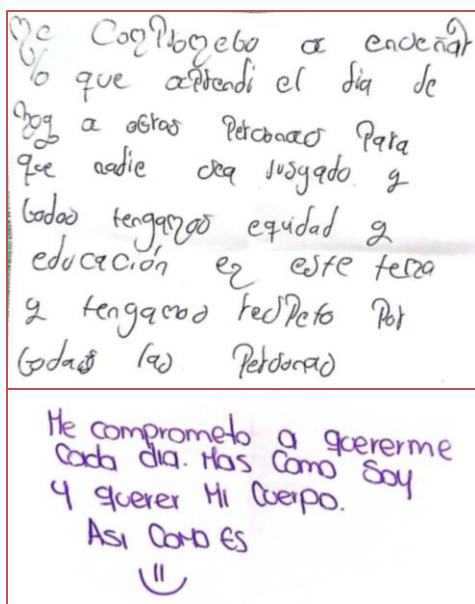 Me Comprometo a enseñar
lo que aprendi el dia de
hoy a otras Personas Para
que nadie sea jusgado y
todos tengamos equidad y
educación en este tema
y tengamos resPeto Por
todas las Personas
Me comprometo a quererme
Cada dia. Mas Como Soy
Y querer Mi Cuerpo.
Asi Como Es